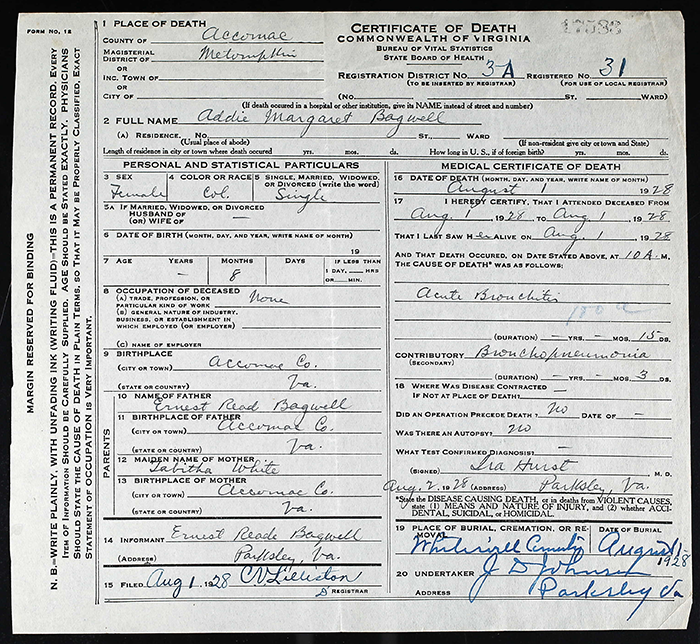 FORM NO. 12
1 PLACE OF DEATH
COUNTY OF Accomac
MAGISTERIAL
DISTRICT OF Metompkin
OR
INC. TOWN OF
OR
CITY OF
CERTIFICATE OF DEATH
COMMONWEALTH OF VIRGINIA
BUREAU OF VITAL STATISTICS
STATE BOARD OF HEALTH
REGISTRATION DISTRICT NO. 3-A REGISTERED NO. 31
(TO BE INSERTED BY REGISTRAR) (FOR USE OF LOCAL REGISTRAR)
(NO. ST. WARD)
(If death occured in a hospital or other institution, give its NAME instead of street and number)
2 FULL NAME Addie Margaret Bagwell
(A) RESIDENCE. NO. ST. WARD
(Usual place of abode) (If non-resident give city or town and State)
Length of residence in city or town where death occured yrs. mos. ds. How long in U. S., if of foreign birth? yrs. mos. ds.
PERSONAL AND STATISTICAL PARTICULARS
3 SEX
Female
4 COLOR OR RACE
Col.
5 SINGLE, MARRIED, WIDOWED,
OR DIVORCED (write the word)
Single
5A IF MARRIED, WIDOWED, OR DIVORCED
HUSBAND OF
(OR) WIFE OF —
6 DATE OF BIRTH (MONTH, DAY, AND YEAR, WRITE NAME OF MONTH)
19
7 AGE YEARS MONTHS DAYS IF LESS THAN
1 DAY, HRS
OR MIN.
– 8
8 OCCUPATION OF DECEASED
(A) TRADE, PROFESSION, OR
PARTICULAR KIND OF WORK None
(B) GENERAL NATURE OF INDUSTRY,
BUSINESS, OR ESTABLISHMENT IN
WHICH EMPLOYED (OR EMPLOYER)
(C) NAME OF EMPLOYER
9 BIRTHPLACE
(CITY OR TOWN) Accomac Co.
(STATE OR COUNTRY) Va.
PARENTS
10 NAME OF FATHER
Ernest Read Bagwell
11 BIRTHPLACE OF FATHER
(CITY OR TOWN) Accomac Co.
(STATE OR COUNTRY) Va.
12 MAIDEN NAME OF MOTHER
Tabitha White
13 BIRTHPLACE OF MOTHER
(CITY OR TOWN) Accomac Co.
(STATE OR COUNTRY) Va.
14 INFORMANT Ernest Reade Bagwell
(ADDRESS) Parksley, Va.
15 FILED Aug 1 1928 C V Lilliston
REGISTRAR
MEDICAL CERTIFICATE OF DEATH
16 DATE OF DEATH (MONTH, DAY, AND YEAR, WRITE NAME OF MONTH)
August 1 1928
17 I HEREBY CERTIFY, THAT I ATTENDED DECEASED FROM
Aug. 1 1928 TO Aug 1, 1928
THAT I LAST SAW Her ALIVE ON Aug. 1 1928
AND THAT DEATH OCCURED, ON DATE STATED ABOVE, AT 10 A. M.
THE CAUSE OF DEATH* WAS AS FOLLOWS:
Acute Bronchitis
(DURATION) – YRS. – MOS. 15 DS.
CONTRIBUTORY Bronchopneumonia
(SECONDARY)
(DURATION) – YRS. – MOS. 3 DS.
18 WHERE WAS DISEASE CONTRACTED
IF NOT AT PLACE OF DEATH? —
DID AN OPERATION PRECEDE DEATH? no DATE OF –
WAS THERE AN AUTOPSY? no
WHAT TEST CONFIRMED DIAGNOSIS? –
(SIGNED) Ira Hurst M. D.
Aug. 2, 1928 (ADDRESS) Parksley, Va.
*State the DISEASE CAUSING DEATH, or in deaths from VIOLENT CAUSES,
state (1) MEANS AND NATURE OF INJURY, and (2) whether ACCI-
DENTAL, SUICIDAL, OR HOMICIDAL.
19 PLACE OF BURIAL, CREMATION, OR RE-
MOVAL
DATE OF BURIAL
August 1-
1928
20 UNDERTAKER J D Johnson
ADDRESS Parksley Va
MARGIN RESERVED FOR BINDING
N. B.—WRITE PLAINLY, WITH UNFADING INK (WRITING FLUID)—THIS IS A PERMANENT RECORD. EVERY
ITEM OF INFORMATION SHOULD BE CAREFULLY SUPPLIED. AGE SHOULD BE STATED EXACTLY. PHYSICIANS
SHOULD STATE THE CAUSE OF DEATH IN PLAIN TERMS, SO THAT IT MAY BE PROPERLY CLASSIFIED, EXACT
STATEMENT OF OCCUPATION IS VERY IMPORTANT.